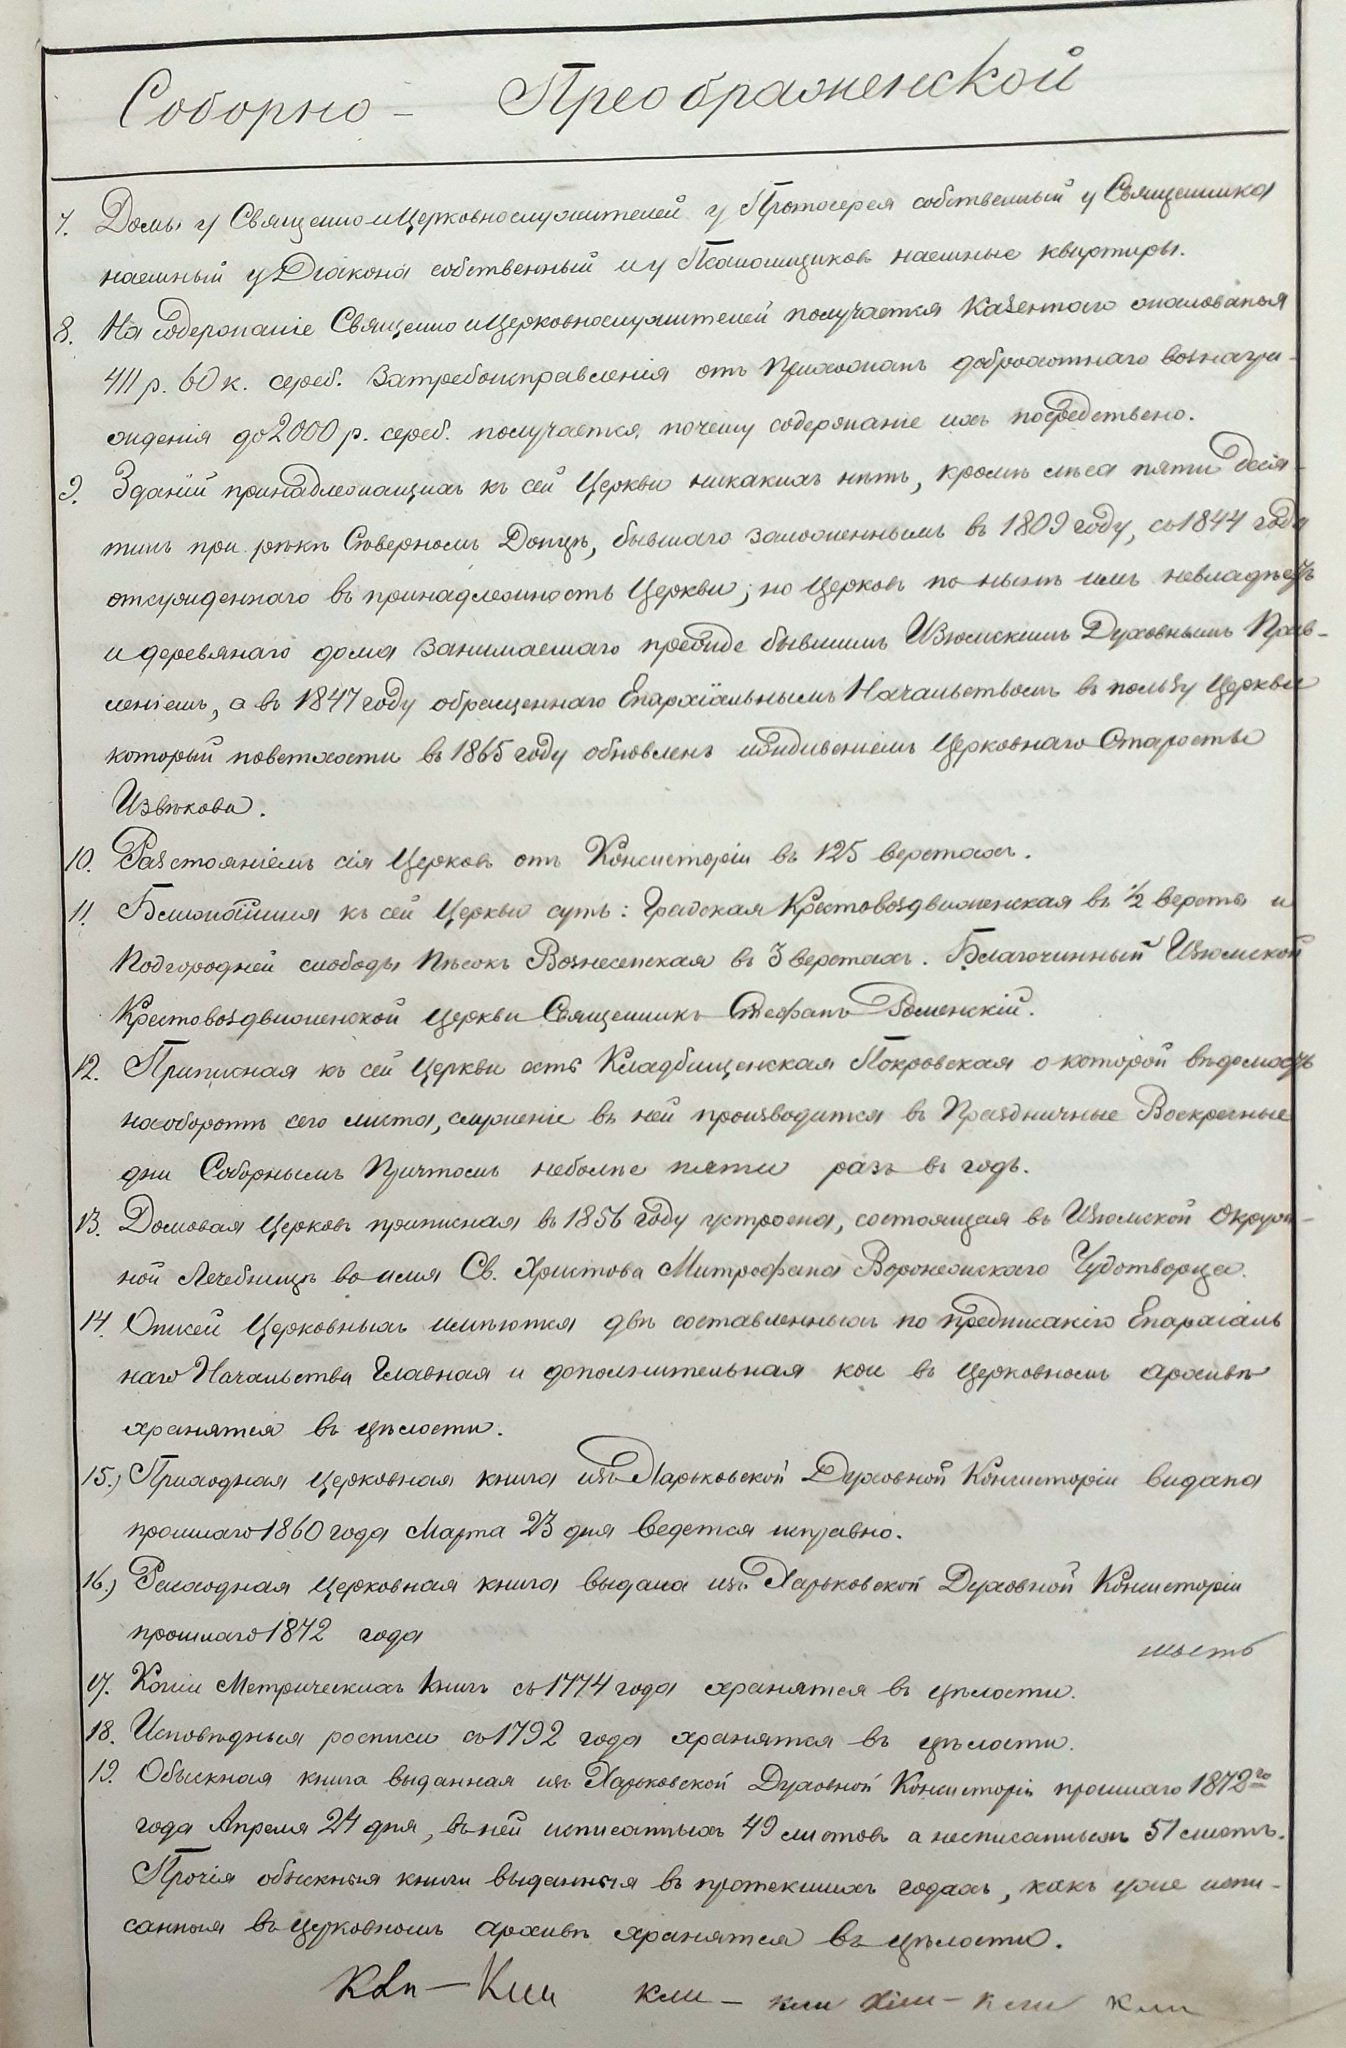 Соборно - Преображенской
7. Домы у Священно и Церковнослужителей у Протоіерея собственный у Священника
наемный у Діакона собственный и у Псаломщиковъ наемные квартиры.
8. На содержаніе Священно и Церковнослужителей получается казеннаго жалованья
411 р. 60 к. сереб. за требоисправленія отъ прихожанъ доброхотнаго вознагра-
жденія до 2000 р. сереб. получается, почему содержаніе ихъ посредствено.
9. Зданій принадлежащихъ къ сей Церкви никакихъ нѣтъ, кромѣ лѣса пяти деся-
тинъ при рѣкѣ Северномъ Донцѣ, бывшаго заложенымъ въ 1809 году, съ 1844 года
отсужденнаго въ принадлежность Церкви; но Церковь по нынѣ имъ невладѣетъ
и деревянаго дома занимаемаго прежде бывшимъ Изюмскимъ Духовнымъ Прав-
леніемъ, а въ 1847 году обращеннаго Епархіальнымъ Начальствомъ въ пользу Церкви
который поветхости въ 1865 году обновленъ иждивеніемъ Церковнаго Старосты
Извѣкова.
10. Разстояніемъ сія Церковь отъ Консисторіи въ 125 верстахъ.
11. Ближайшія къ сей Церкви суть: Градская Крестовоздвиженская въ ½ версты и
подгородней слободы Пѣсокъ Вознесенская въ 3 верстахъ. Благочинный Изюмской
Крестовоздвиженской Церкви Священникъ Стефанъ Роменскій.
12. Приписная къ сей Церкви есть Кладбищенская Покровская о которой вѣдомость
наоборотѣ сего листа, служеніе въ ней производится въ Праздничные Воскресные
дни Соборнымъ Причтомъ неболѣе пяти разъ въ годъ.
13. Домовая Церковь приписная въ 1856 году устроена, состоящая въ Изюмской Окруж-
ной Лечебницѣ во имя Св. Христова Митрофана Воронежскаго Чудотворца.
14. Описей Церковныхъ имѣются двѣ составленныхъ по предписанію Епархіаль
наго Начальства Главная и дополнительная кои въ Церковномъ архивѣ
хранятся въ цѣлости.
15.) Приходная Церковная книга изъ Харьковской Духовной Консисторіи видана
прошлаго 1860 года Марта 23 дня ведется исправно.
16.) Расходная Церковная книга выдана изъ Харьковской Духовной Консисторіи
прошлаго 1872 года
17. Копіи Метрическихъ книгъ съ 1774 года хранятся въ цѣлости.
18. Исповѣдныя росписи съ 1792 года хранятся въ цѣлости.
19. Обыскная книга выданная изъ Харьковской Духовной Консисторіи прошлаго 1872го
года Апреля 24 дня, въ ней исписанныхъ 49 листовъ а неписанныхъ 51 листъ.
Прочія обыскныя книги выданныя въ протекшихъ годахъ, какъ уже испи-
санныя въ церковномъ архивѣ хранятся въ цѣлости.